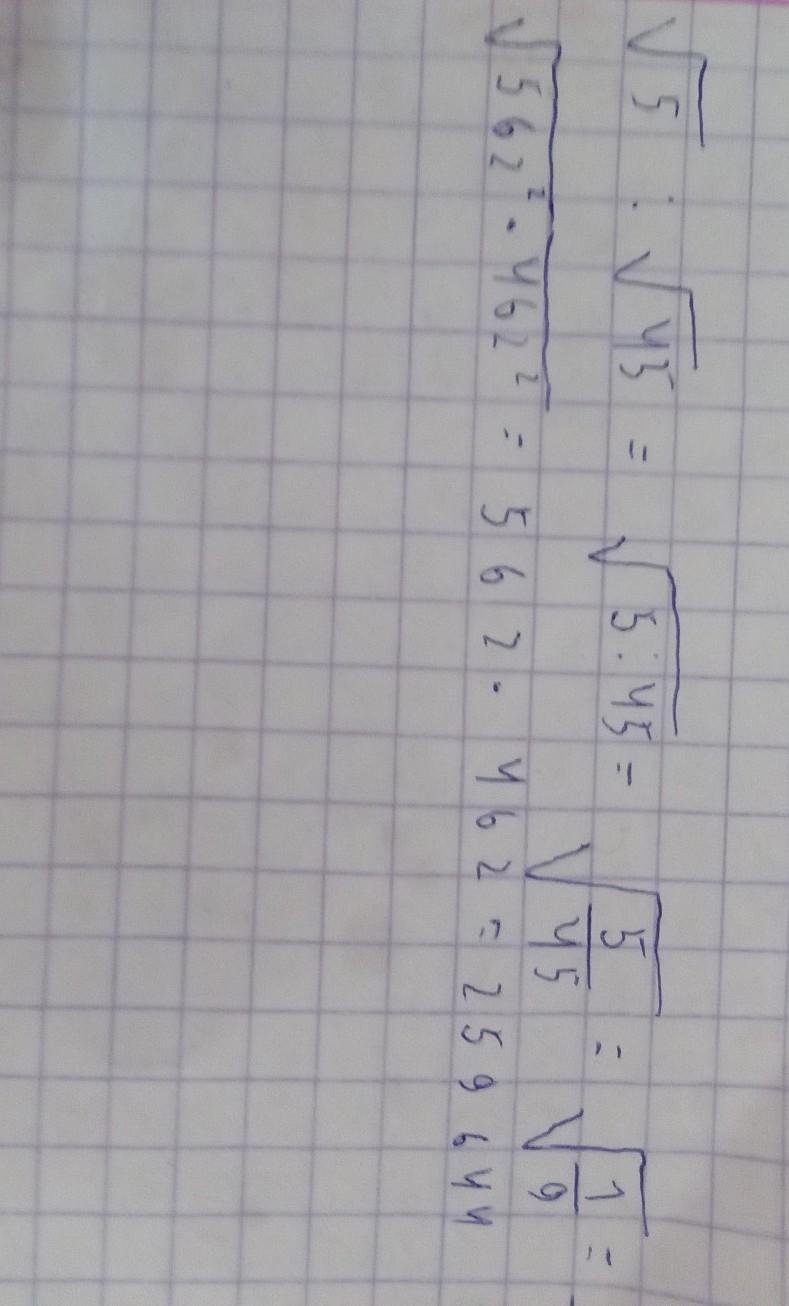 √5 : √45 = √5:45 = √5/45 = √1/9 =
√562² · 462² = 562 · 462 = 259644